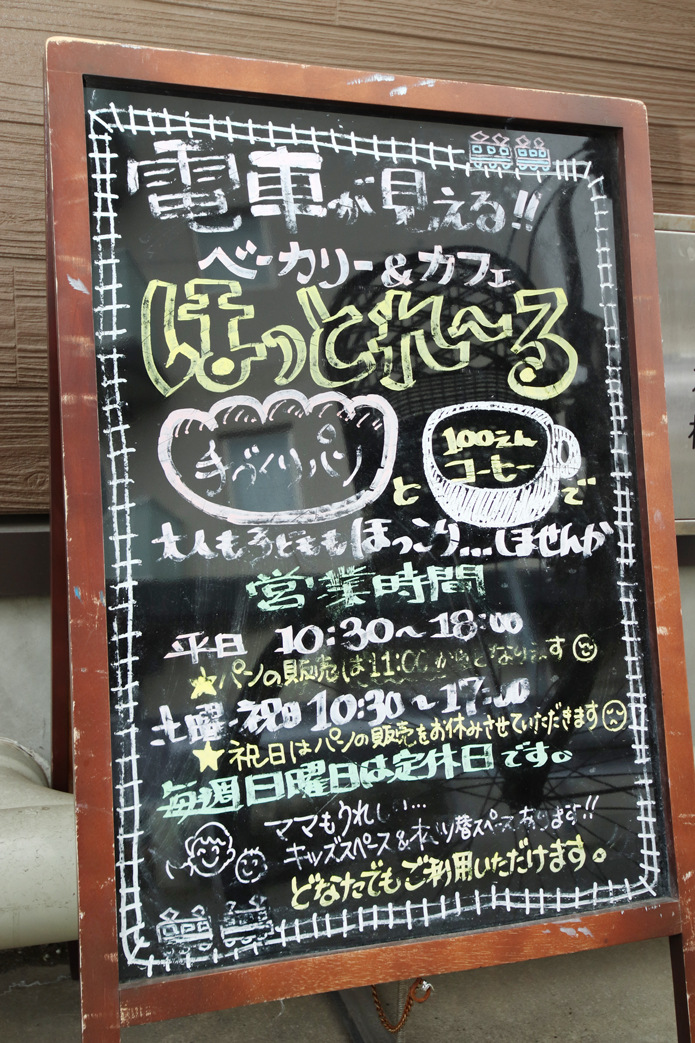 電車が見える!!
ベーカリー&カフェ
ほっとれ〜る
手づくりパン
と
100えん
コーヒー
で
大人も子どももほっこり…しませんか
営業時間
平日 10:30〜18:00
★パンの販売は11:00からとなります
土曜・祝日 10:30〜17:00
★祝日はパンの販売をお休みさせていただきます
毎週日曜日は定休日です。
ママもうれしい…
キッズスペース&おむつ替スペースあります!!
どなたでもご利用いただけます。